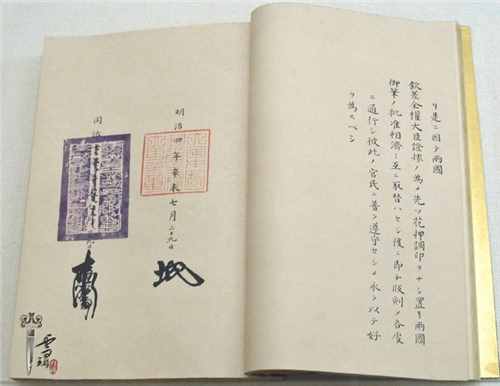 リ是ニ因テ兩國
欽差全權大臣證據ノ為メ先ツ花押調印ヲナシ置キ兩國
御筆ノ批准相濟ミ互ニ取替ハセシ後ニ即チ版刻シ各處
ニ通行シ彼此ノ官民ニ普ク遵守セシメ永ク以テ好
ヲ為スヘシ
明治四年辛未七月二十九日
同治